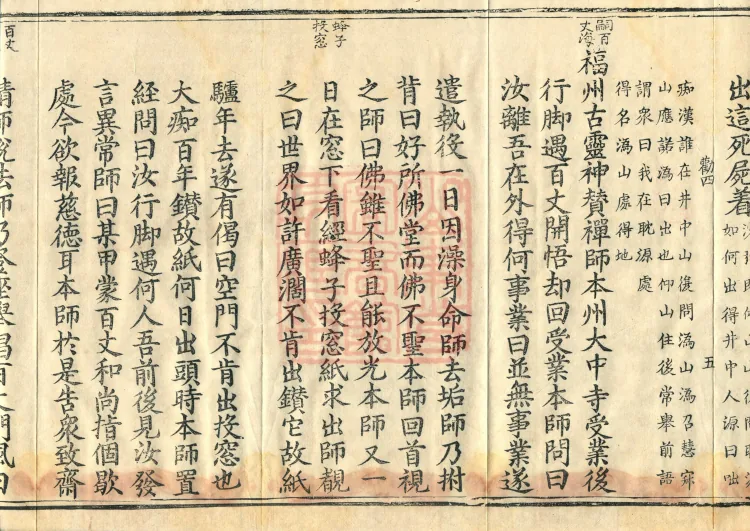 出這死屍着
如何出得井中人源曰咄
勸四
五
痴漢誰在井中山後問潙山潙召慧寂
山應諾潙曰出也仰山住後常舉前語
謂衆曰我在耽源處
得名潙山處得地
嗣百
丈海
福州古靈神賛禪師本州大中寺受業後
行脚遇百丈開悟却回受業本師問曰
汝離吾在外得何事業曰並無事業遂
遣執役一日因澡身命師去垢師乃拊
背曰好所佛堂而佛不聖本師回首視
之師曰佛雖不聖且能放光本師又一
蜂子
投窓
日在窓下看經蜂子投窓紙求出師覩
之曰世界如許廣濶不肯出鑚它故紙
驢年去遂有偈曰空門不肯出投窓也
大痴百年鑚故紙何日出頭時本師置
經問曰汝行脚遇何人吾前後見汝發
言異常師曰某甲蒙百丈和尚指個歇
處今欲報慈德耳本師於是告衆致齋
百丈
請師說法師乃登座舉唱百丈門風曰